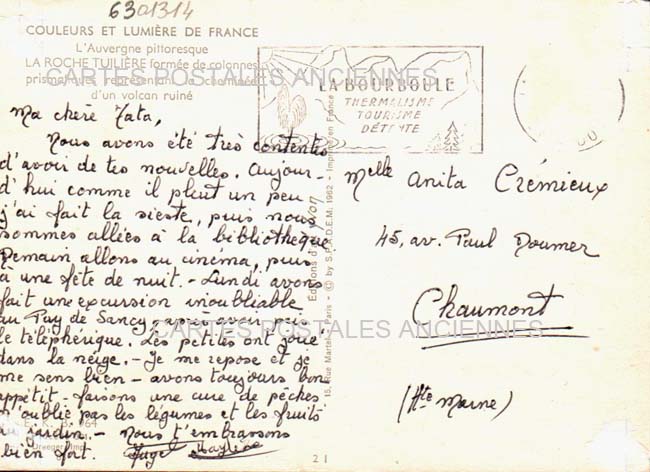 6301314
COULEURS ET LUMIÈRE DE FRANCE
L'Auvergne pittoresque
LA ROCHE TUILIÈRE formée de colonnes
prismatiques représentant la cheminée
d'un volcan ruiné
CARTES POSTALES ANCIENNES
LA BOURBOULE
THERMALISME
TOURISME
DÉTENTE
Ma chère Tata,
Nous avons été très contentes
d'avoir de tes nouvelles. Aujour-
d'hui comme il pleut un peu
j'ai fait la sieste, puis nous
sommes allées à la bibliothèque
Demain allons au cinéma, puis
à une fête de nuit. - Lundi avons
fait une excursion inoubliable
au Puy de Sancy, après avoir pris
le téléphérique. Les petites ont joué
dans la neige. - Je me repose et je
me sens bien - avons toujours bon
appétit - faisons une cure de pêches
n'oublie pas les légumes et les fruits
du jardin. - Nous t'embrassons
bien fort.
Melle Anita Crémieux
45, av. Paul Doumer
Chaumont
(Hte Marne)
CARTES POSTALES ANCIENNES
15, Rue Martel, Paris - © by S.P.A.D.E.M. 1962 - Imprimé en France
E. K. B. 964
21